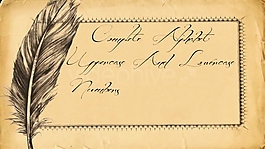 Complete Alphabet
Uppercase And Lowercase
Numbers